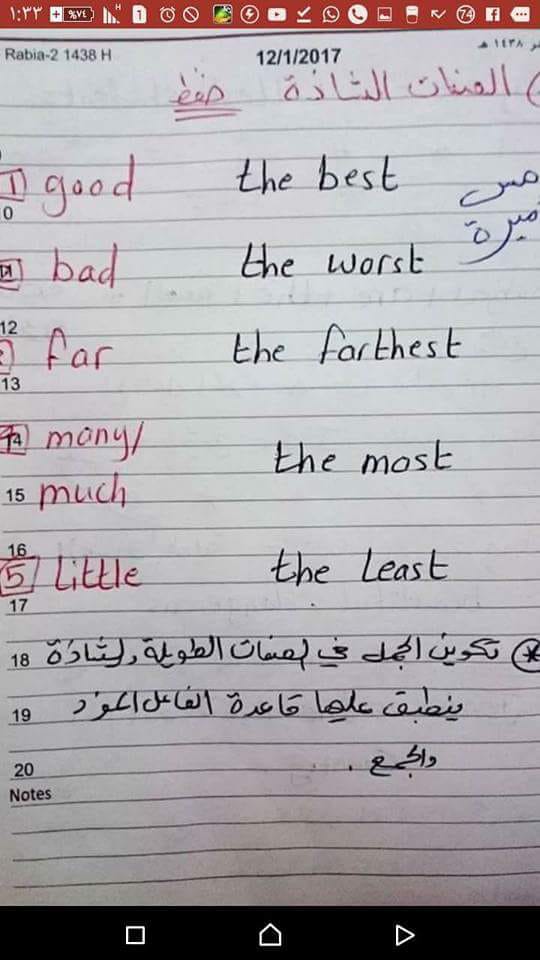 ١:٣٣ %٧٤ 74
Rabia-2 1438 H 12/1/2017 ١٤٣٨ هـ
الصفات الشاذة حفظ
1 good the best
0
bad the worst
12
far the farthest
13
14 many/
the most
15 much
16
5 Little the Least
17
18 تكوين الجمل في الصفات الطويلة والشاذة
19 ينطبق عليها قاعدة الفاعل المفرد
20 والجمع .
Notes